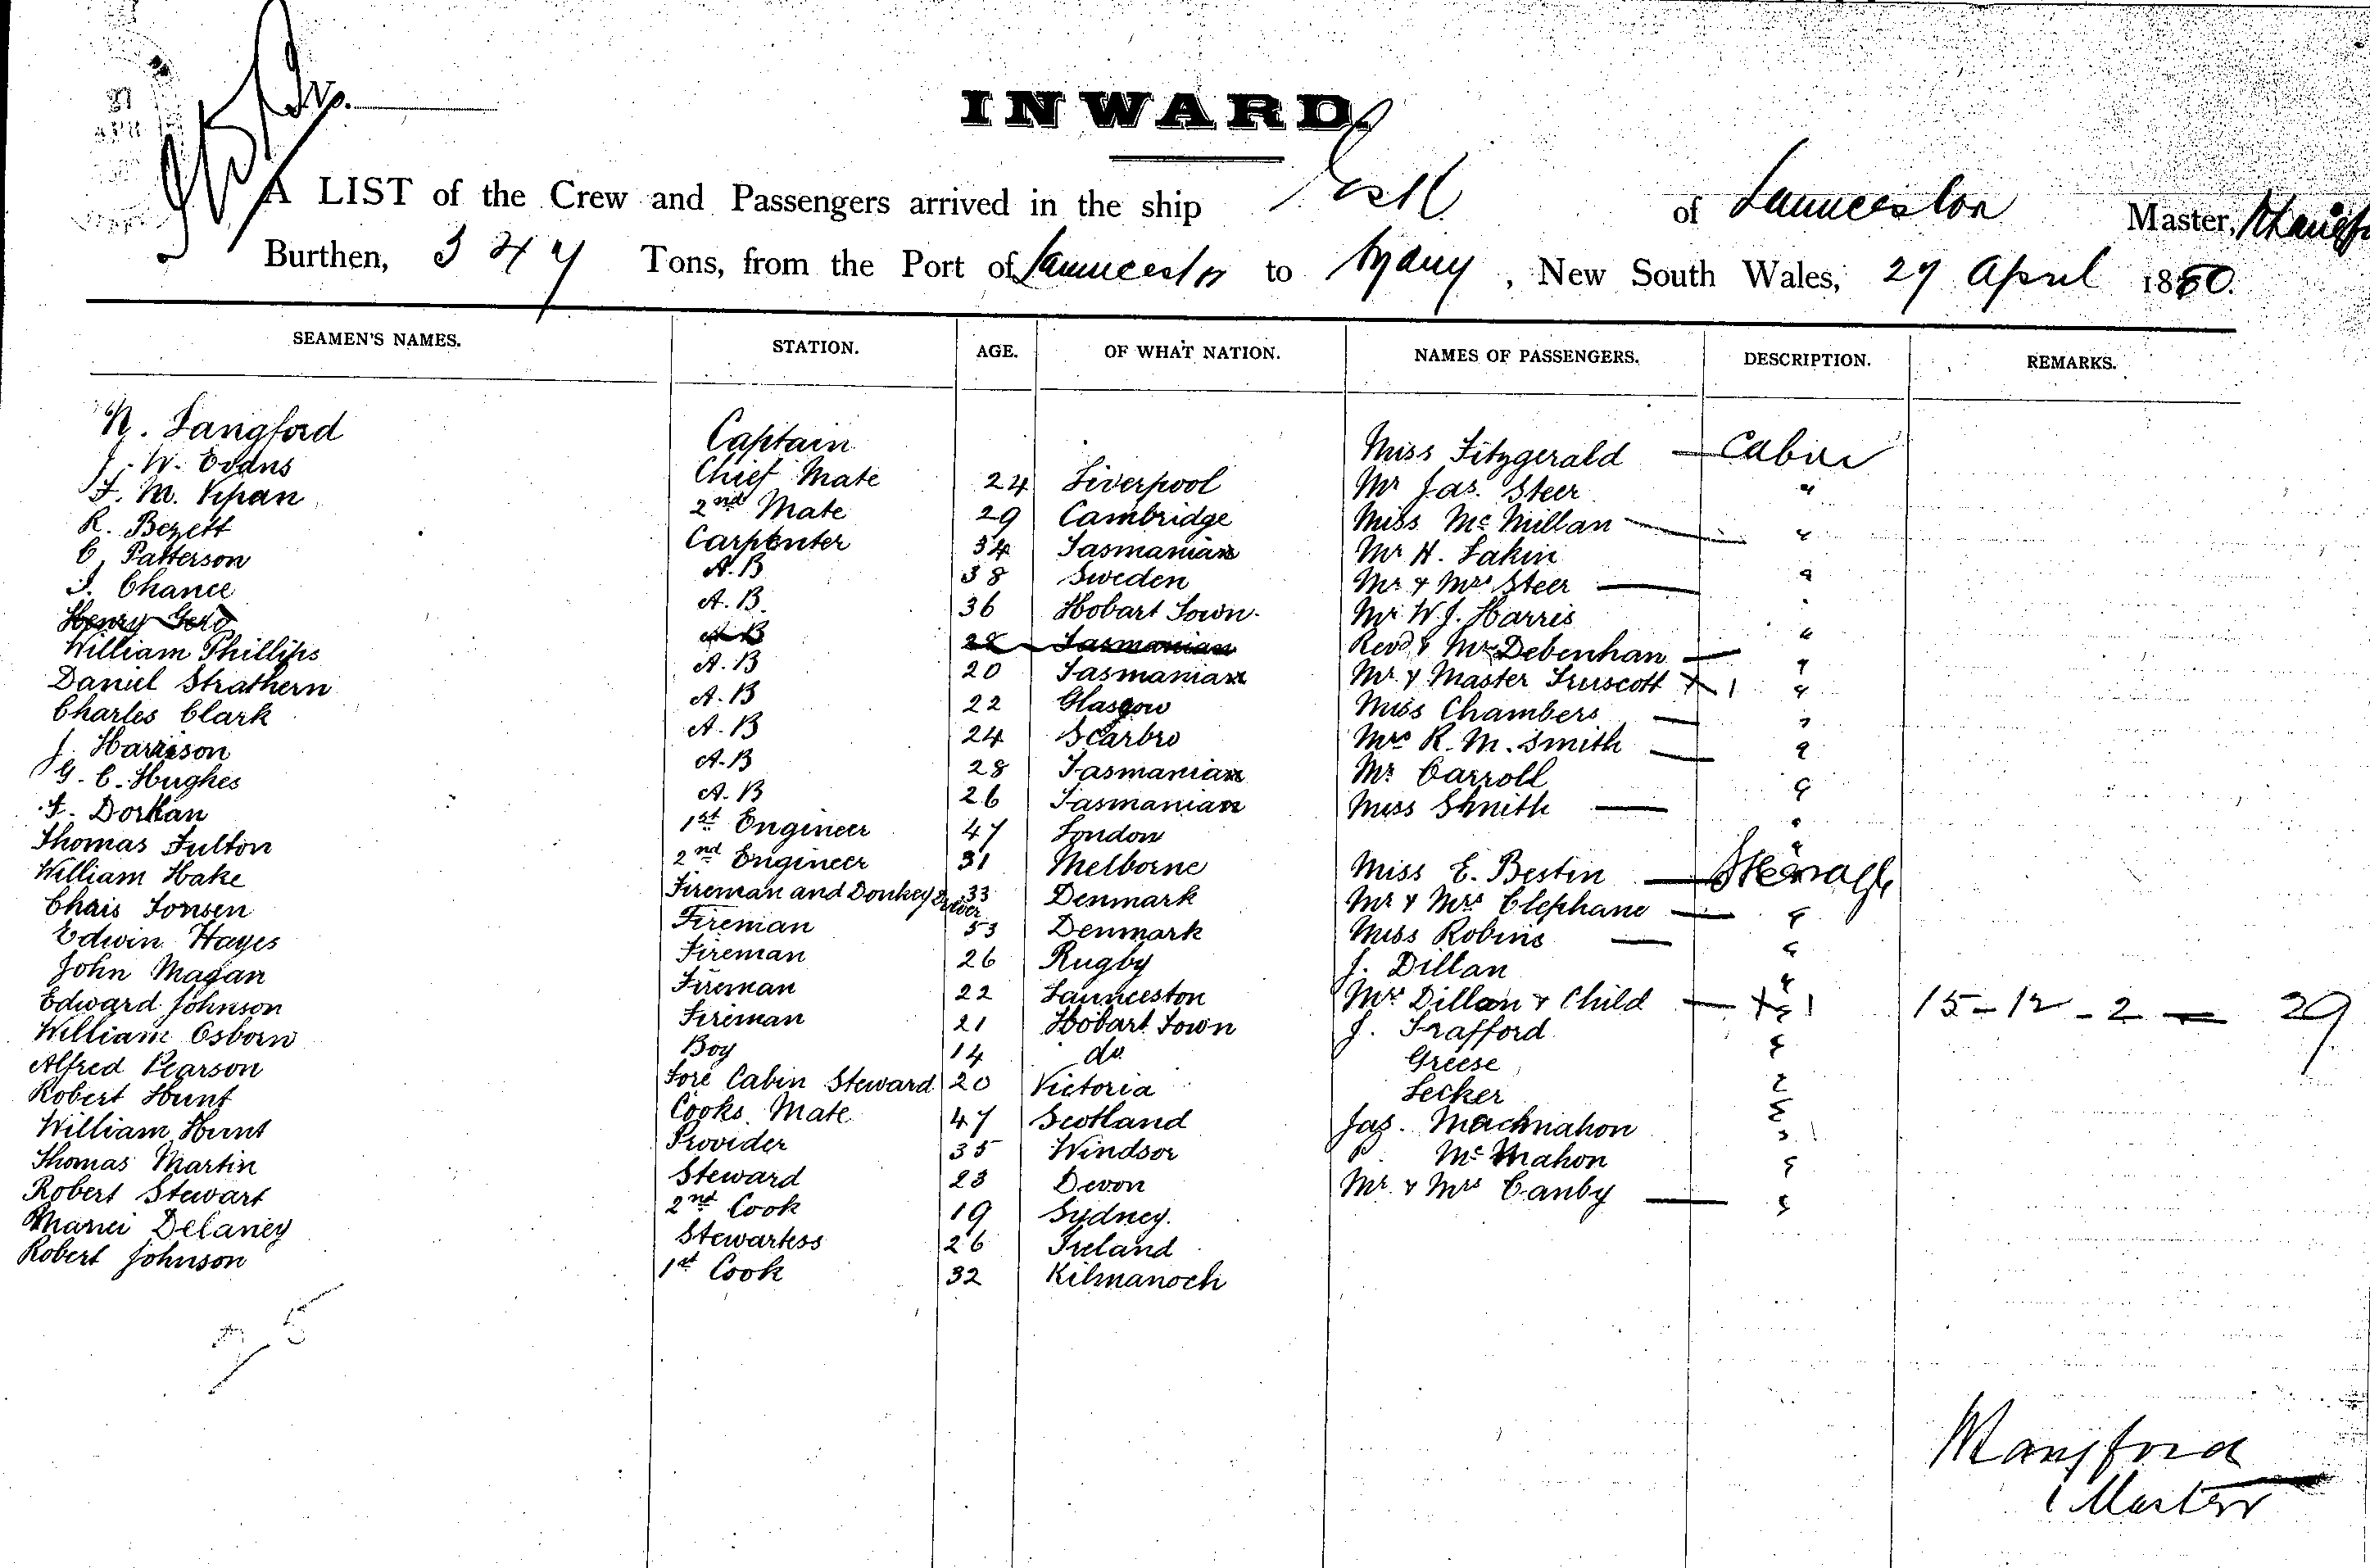 No.
INWARD.
A LIST of the Crew and Passengers arrived in the ship Esk of Launceston Master,
Burthen, 347 Tons, from the Port of Launceston to Sydney, New South Wales, 27 April 1880.
SEAMEN'S NAMES. STATION. AGE. OF WHAT NATION. NAMES OF PASSENGERS. DESCRIPTION. REMARKS.
N. Langford Captain Miss Fitzgerald — Cabin
J. W. Evans Chief Mate 24 Liverpool Mr Jas. Steer "
F. M. 2nd Mate 29 Cambridge Miss McMillan — "
R. Bezett Carpenter 34 Tasmanian Mr H. Lakin "
C. Patterson A.B 38 Sweden Mr & Mrs Steer — "
I. Chance A.B. 36 Hobart Town Mr W. J. Harris "
Henry A B 28 Tasmanian Revd & Mrs Debenhan — "
William Phillips A.B 20 Tasmanian Mr & Master Truscott + 1 "
Daniel Strathern A.B 22 Glasgow Miss Chambers — "
Charles Clark A.B 24 Scarbro Mrs R. M. Smith — "
J. Harrison A.B 28 Tasmanian Mr Carroll "
G. C. Hughes A.B 26 Tasmanian Miss Shnith — "
F. Dorkan 1st Engineer 47 London
Thomas Fulton 2nd Engineer 31 Melborne Miss E. Bestin — Steerage
William Hake Fireman and Donkey Driver 33 Denmark Mr & Mrs Clephane — "
Chris Jonsen Fireman 53 Denmark Miss Robins — "
Edwin Hayes Fireman 26 Rugby J. Dillan "
John Magan Fireman 22 Launceston Mrs Dillan & Child — + 1 " 15 - 12 - 2 = 29
Edward Johnson Fireman 21 Hobart Town J. Trafford "
William Osborn Boy 14 do Greese "
Alfred Pearson Fore Cabin Steward 20 Victoria Lecker "
Robert Hunt Cooks Mate 47 Scotland Jas. Macmahon "
William Hunt Provider 35 Windsor P. McMahon "
Thomas Martin Steward 23 Devon Mr & Mrs Canby — "
Robert Stewart 2nd Cook 19 Sydney.
Delaney Stewartess 26 Ireland
Robert Johnson 1st Cook 32 Kilmanoch
Langford
Master